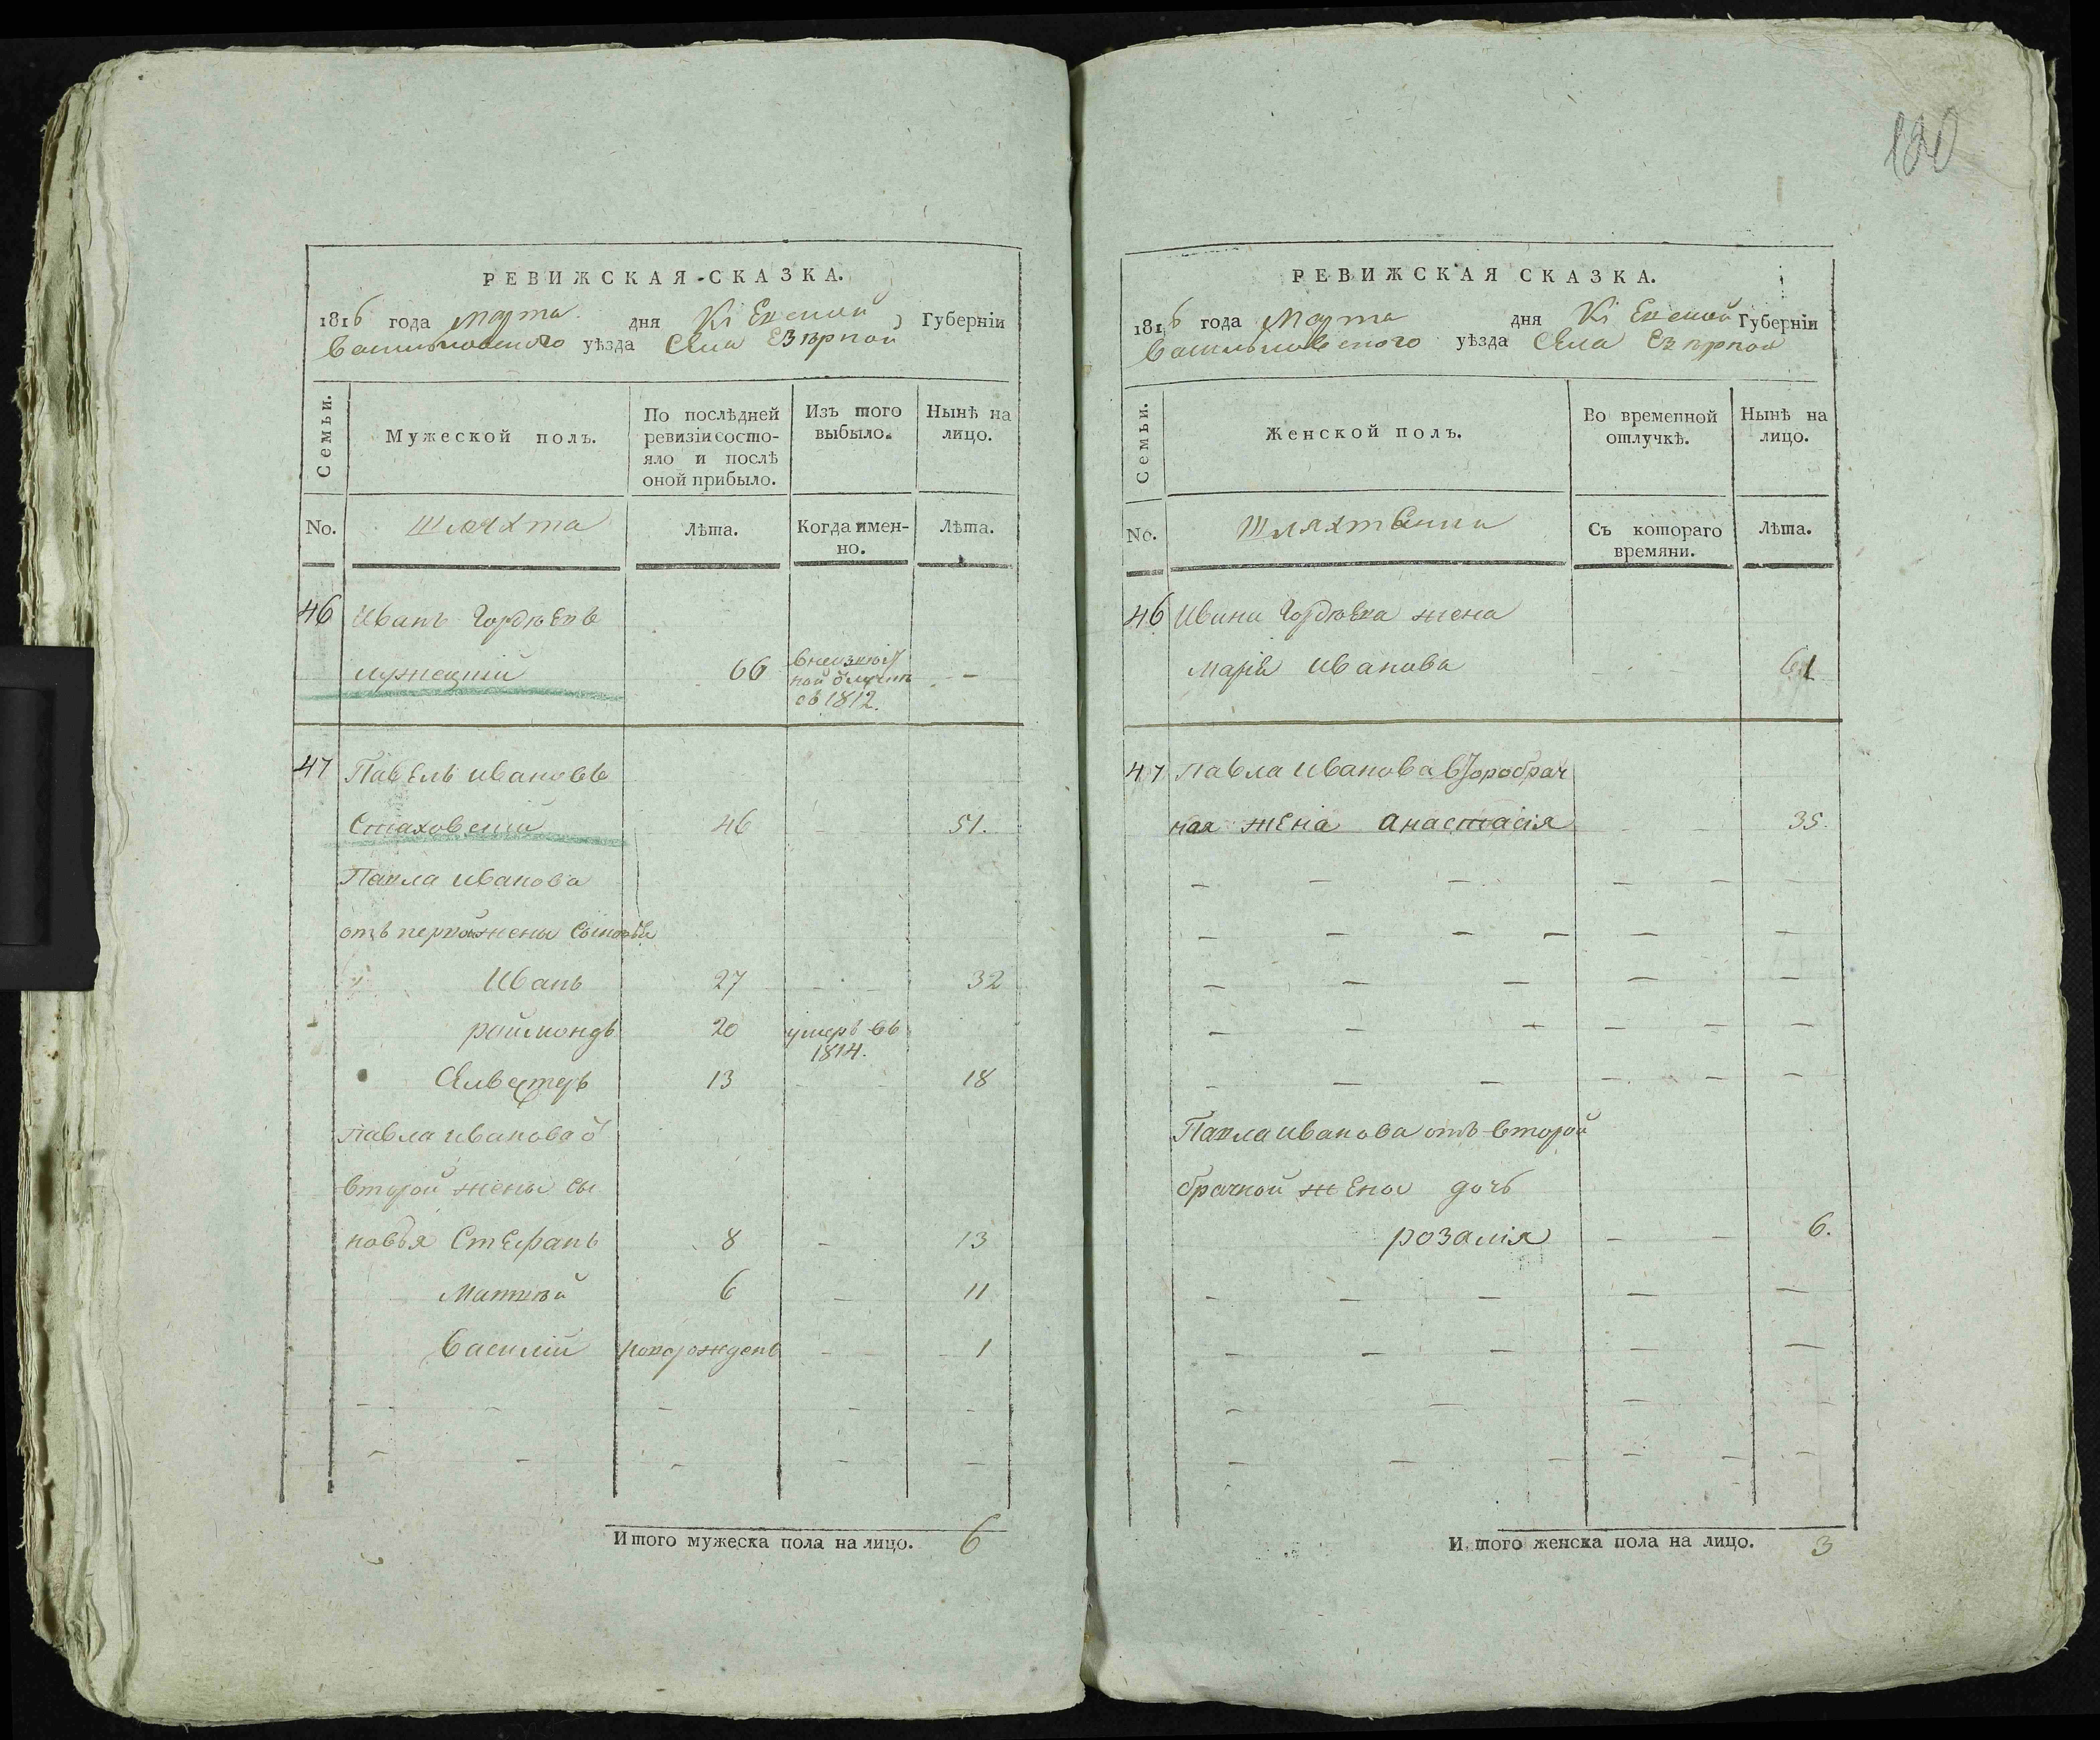 130
РЕВИЖСКАЯ СКАЗКА.
1816 года Марта дня Кіевской Губерніи
Васильковского уѣзда Села Езѣрной
Семьи.
Мужеской полъ.
По послѣдней
ревизіи состо-
яло и послѣ
оной прибыло.
Изъ того
выбыло.
Нынѣ на
лицо.
No.
Шляхта
Лѣта.
Когда имен-
но.
Лѣта.
46 Иванъ Гордѣевъ
Лужецкій 66 —
съ 1812.
47 Павелъ Ивановъ
Стаховскій 46 51.
Павла Иванова
отъ первой жены сыновья
Иванъ 27 32
Раймондъ 20 умеръ въ
1814.
Селвестръ 13 18
Павла Иванова
второй жены сы
новья Стефанъ 8 — 13
Матвѣй 6 — 11
Василій новорожденъ — 1
Итого мужеска пола на лицо. 6
РЕВИЖСКАЯ СКАЗКА.
1816 года Марта дня Кіевской Губерніи
Васильковского уѣзда Села Езѣрной
Семьи.
Женской полъ.
Во временной
отлучкѣ.
Нынѣ на
лицо.
No.
Шляхтянки
Съ котораго
времяни.
Лѣта.
46 Ивана Гордѣева жена
Марія Иванова 61
47 Павла Иванова второбрач
ная жена Анастасія 35.
Павла Иванова отъ второй
брачной жены дочь
Розалія — — 6.
Итого женска пола на лицо. 3